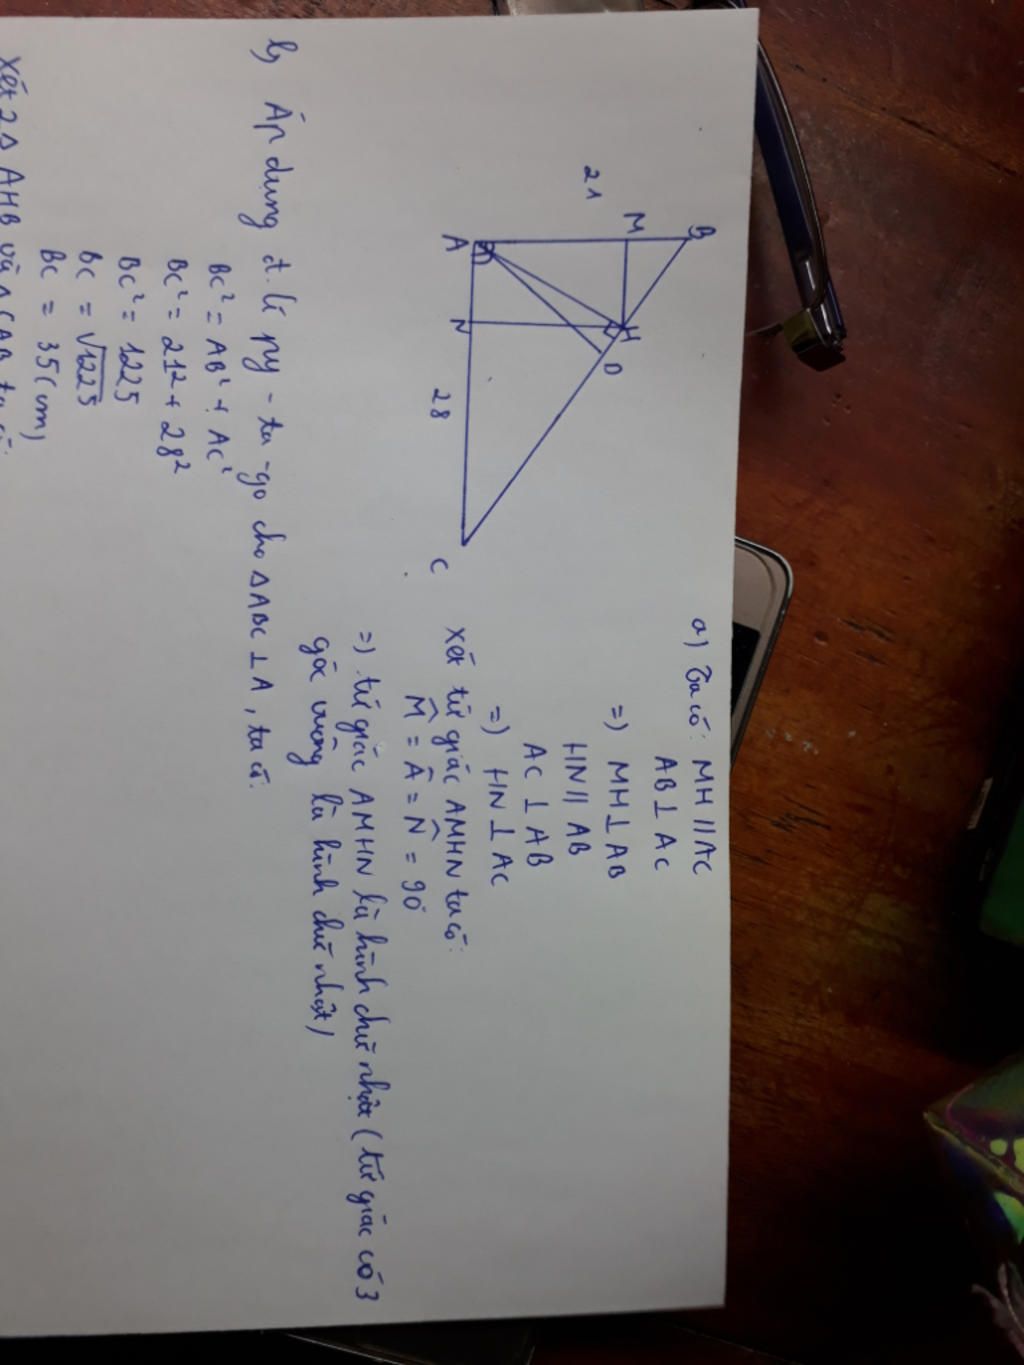 B
M
21
H
D
A
N
28
C
a) Ta có: MH // AC
AB ⊥ AC
=) MH ⊥ AB
HN // AB
AC ⊥ AB
=) HN ⊥ AC
Xét tứ giác AMHN ta có:
M̂ = Â = N̂ = 90
=) tứ giác AMHN là hình chữ nhật (tứ giác có 3
góc vuông là hình chữ nhật)
b) Áp dụng đ.lí py - ta - go cho ΔABC ⊥ A, ta có:
BC² = AB² + AC²
BC² = 21² + 28²
BC² = 1225
BC = √1225
BC = 35 (cm)
Xét 2Δ AHB và ΔCAB ta có: